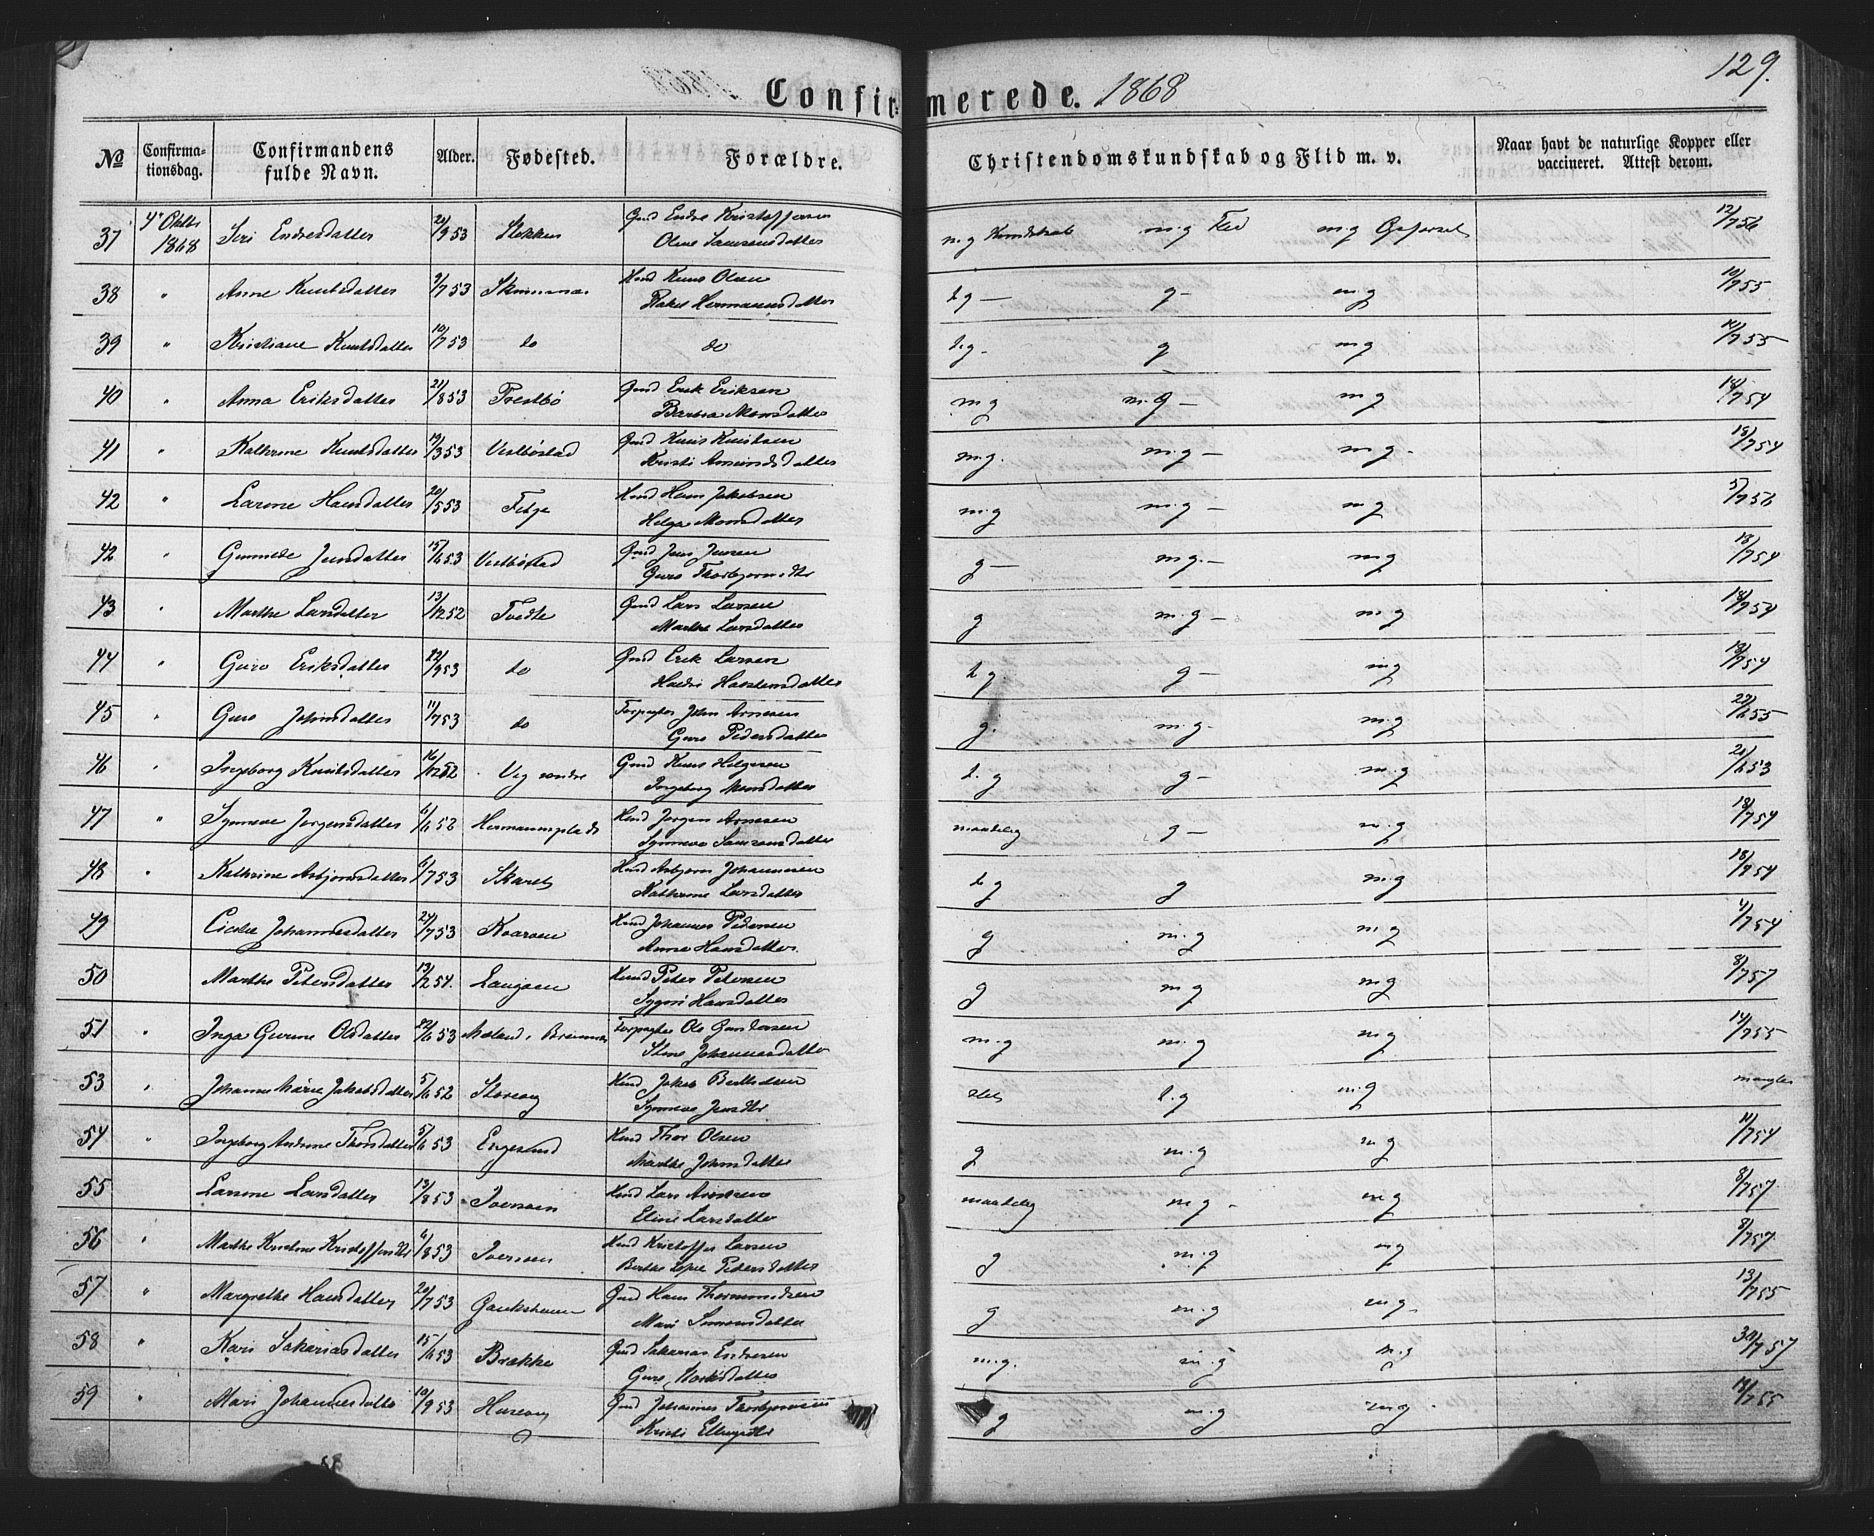 129.
Confirmerede. 1868
No Confirmationsdag. Confirmandens fulde Navn. Alder. Fødested. Forældre. Christendomskundskab og Flid m. v. Naar havt de naturlige Kopper eller vaccineret. Attest derom.
37 4 Oktbr 1868 Siri Endresdatter 9 53 Stokken Gmd Endre Kristoffersen m.g Kundskab m.g Flid m.g Opførsel 12/7 56
Oline Samsonsdatter
38 " Anne Knutsdatter 7 53 Hmd Knut Olsen t g — g — m g 10/7 55
Rakel Hermannsdatter
39 " Kristiane Knutsdatter 10/7 53 do do t.g - g m g 7 55
40 " Anna Eriksdatter 21/8 53 Tvestbø Gmd Erik Eriksen m g m.g — m g 18/7 54
Barbra Monsdatter
41 " Kathrine Knutsdatter 19/3 53 Vestbøstad Gmd Knut Knutsen m.g. m.g — m.g. 18/7 54
Kristi Amundsdatter
42 " Larine Hansdatter 20/5 53 Fitje Hmd Hans Jakobsen m.g m.g — m g 5/7 56
Helga Monsdatter
42 " Gunnilde Jensdatter 15/6 53 Vestbøstad Gmd Jens Jensen g — m.g. — m g 18/7 54
Guro Thorbjørnsdtr
43 " Marthe Larsdatter 13/12 52 Tvedte Gmd Lars Larsen g m.g — m.g 18/7 54
Marthe Larsdatter
44 " Guro Eriksdatter 22/9 53 do Gmd Erik Larsen t g. g — m g 18/7 54
45 " Guro Johnsdatter 11/7 53 do Forpagter John Arnesen g. m.g - m.g 55
Guro Pedersdatter
46 " Ingeborg Knutsdatter 16/12 52 Vig søndre Gmd Knut Helgesen t. g g — m.g 21/6 53
Ingeborg Monsdatter
47 " Synneve Jørgensdatter 6/6 52 Hermannsplads Hmd Jørgen Arnesen maadelig g — m.g 18/7 54
Synneve Samsonsdatter
48 " Kathrine Asbjørnsdatter 6/7 53 Skaret Hmd Asbjørn Johannesen t g g m.g 18/7 54
Kathrine Larsdatter
49 Johannesdatter 24/7 53 Kvarven Hmd Johannes Pedersen g m.g m g 4/7 54
Anna Hansdatter.
50 Marthe Petersdatter 13/2 54. Langøen Hmd Peter Petersen g m g m g 8/7 57
Hansdatter
51 " Inga Gurine Olsdatter 22/6 53 Forpagter Ole Gundersen m.g m.g m g 14/7 55
Stine Johannesdatter
53 " Johanne Marie Jakobsdatter 5/6 52 Storeøy Hmd Jakob slet t.g m.g mangler
Synneve Jensdtr
54 " Ingeborg Andrine Thorsdatter 5/6 53 Engesund Hmd Thor Olsen g m.g m g 11/7 54
Marthe Johnsdatter
55 " Larsine Larsdatter 13/8 53 Iversøen Hmd Lars Arnesen maadelig m g - m g 8/7 57
Eline Larsdatter
56 " Marthe Kristine Kristoffersdtr 4/8 53 Iversøen Hmd Kristoffer Larsen g m.g m g 8/7 57
Berthe Pedersdatter
57 " Margrethe Hansdatter 20/7 53 Gaukshavn Gmd Hans Thormundsen g m.g m g. 13/7 55
Mari Simonsdatter
58 " Kari Sakariasdatter 15/6 53 Brakke Gmd Sakarias Endresen m.g. m.g m.g 30/7 57
Guro
59 " Mari Johannesdatter 10/9 53 Husøy Gmd Johannes Thorbjørnsen g m.g m g 7 55
Kristi